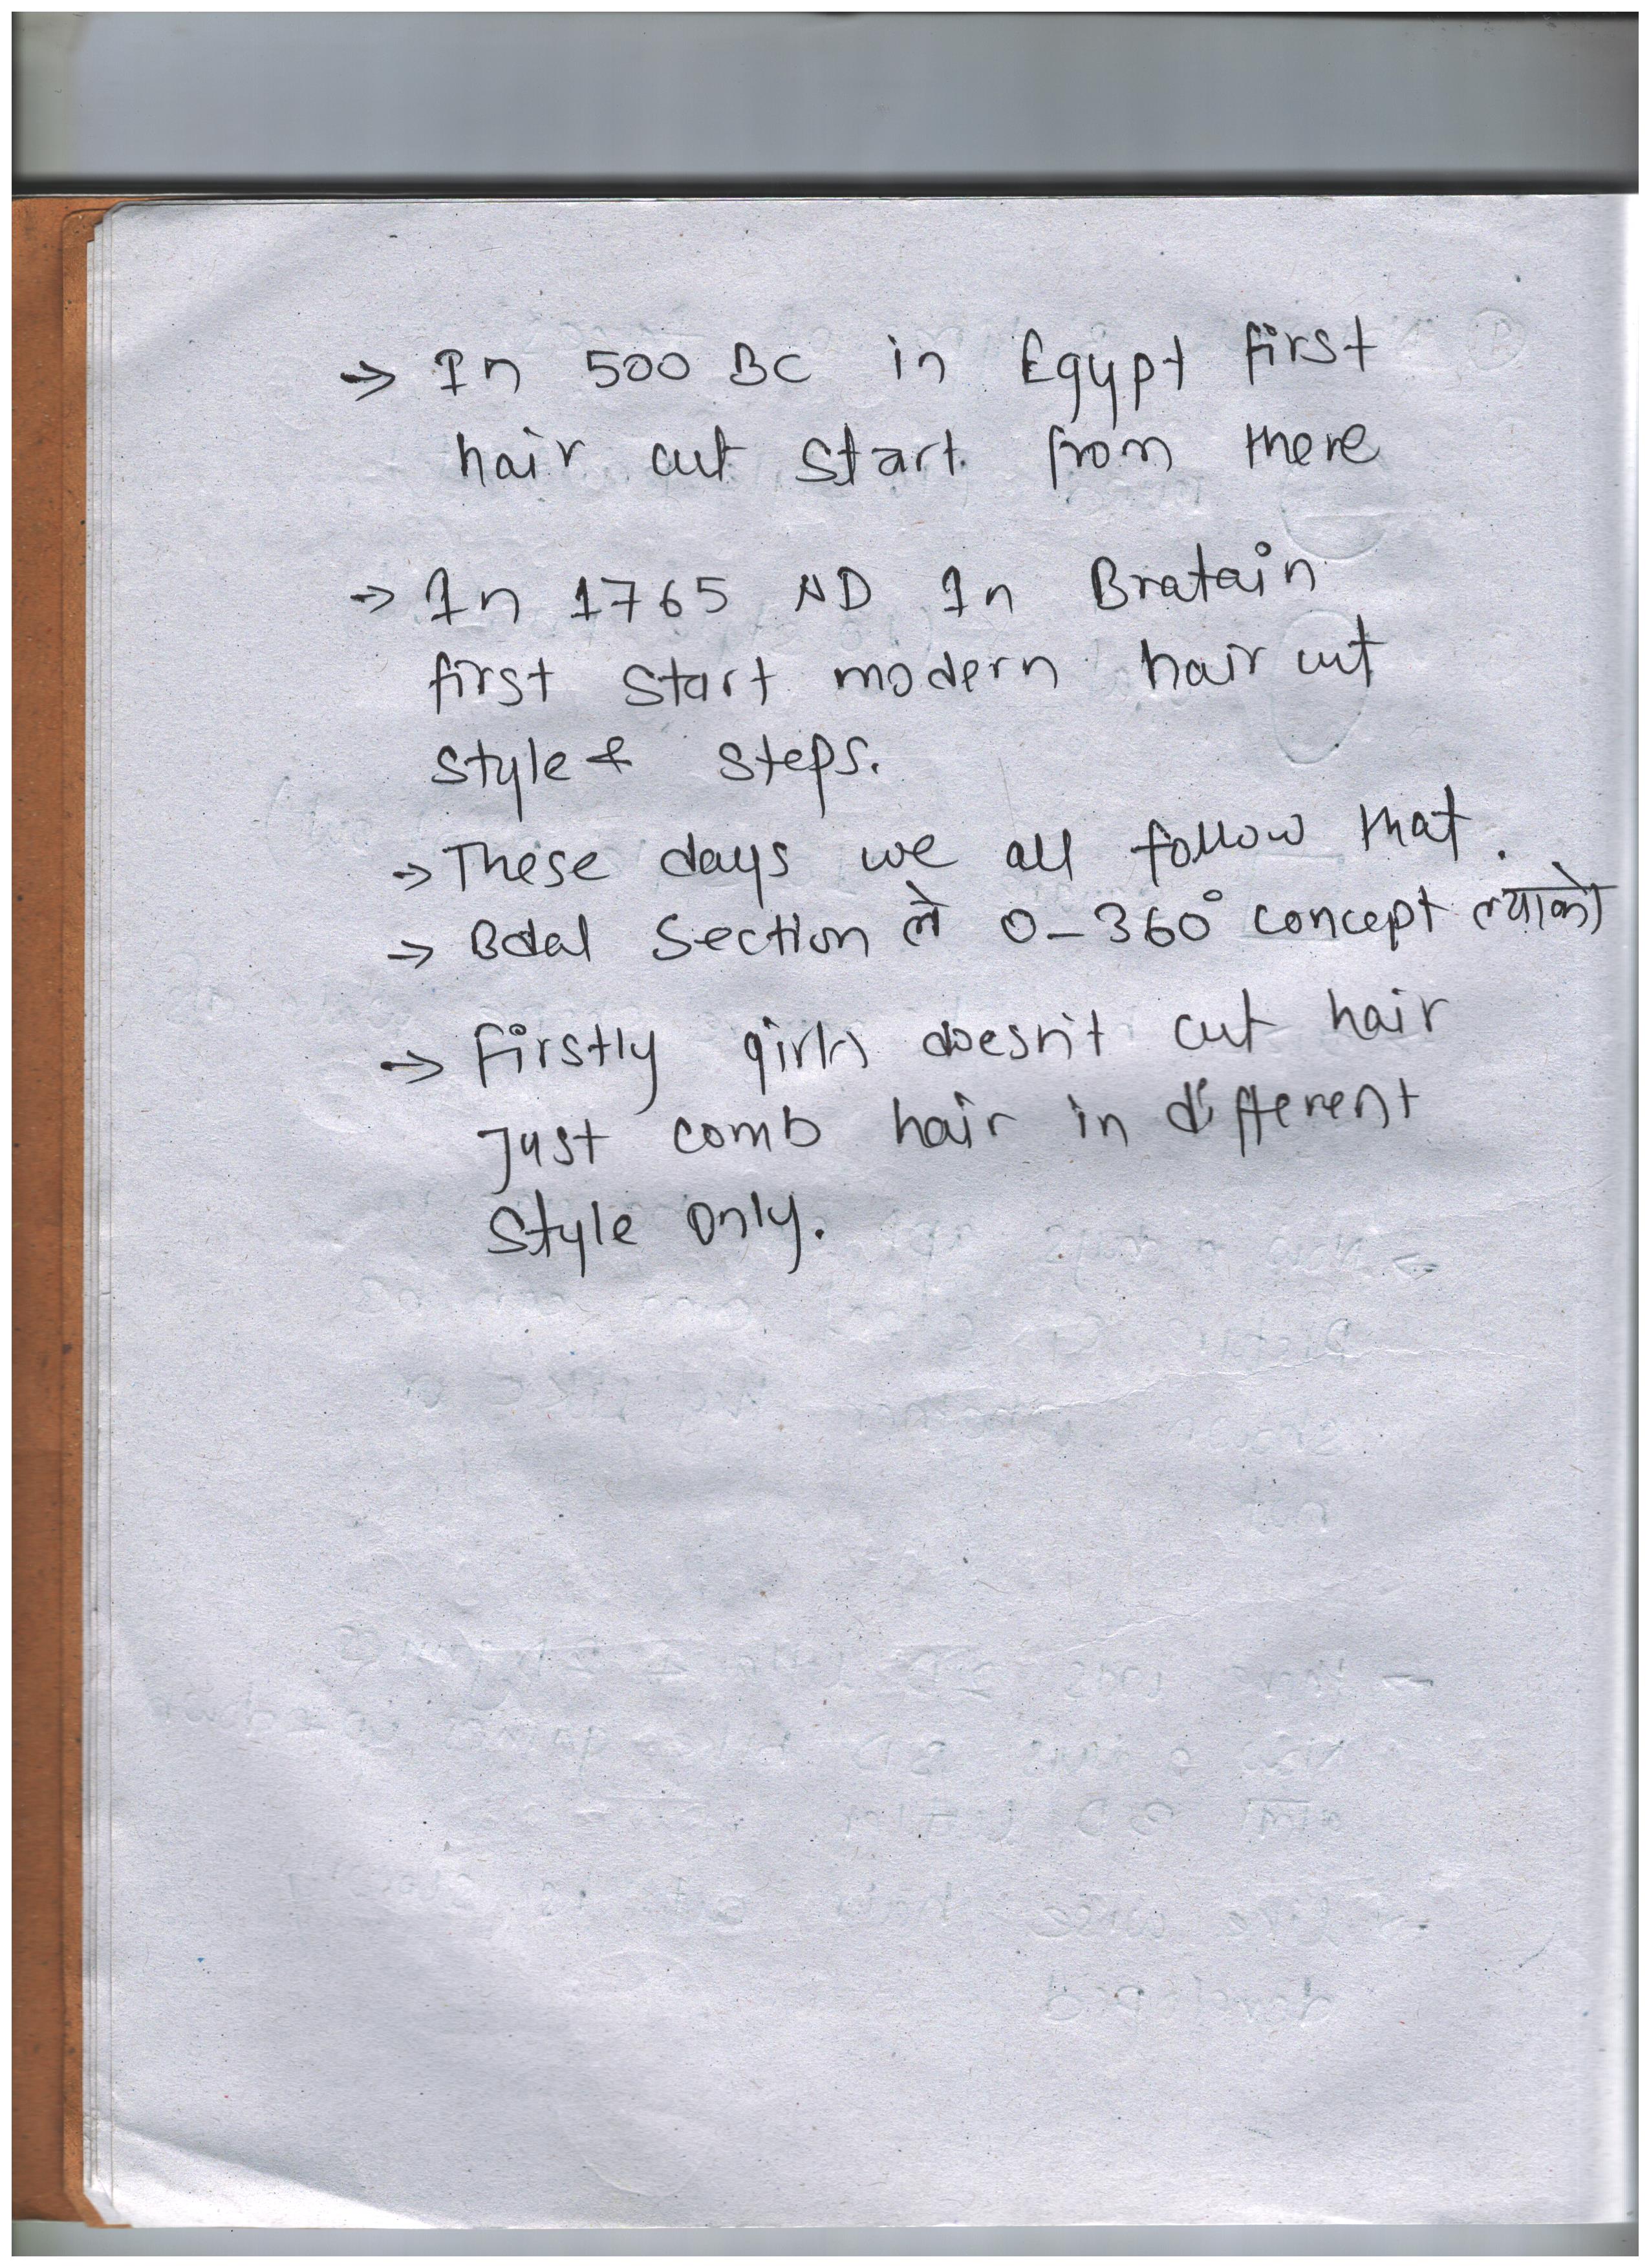 → In 500 BC in Egypt first
hair cut start from there
→ In 1765 AD In Bratain
first start modern hair cut
style & steps.
→ These days we all follow that.
→ Section ले 0-360° concept ल्याको
→ firstly girls doesn't cut hair
Just comb hair in different
Style Only.